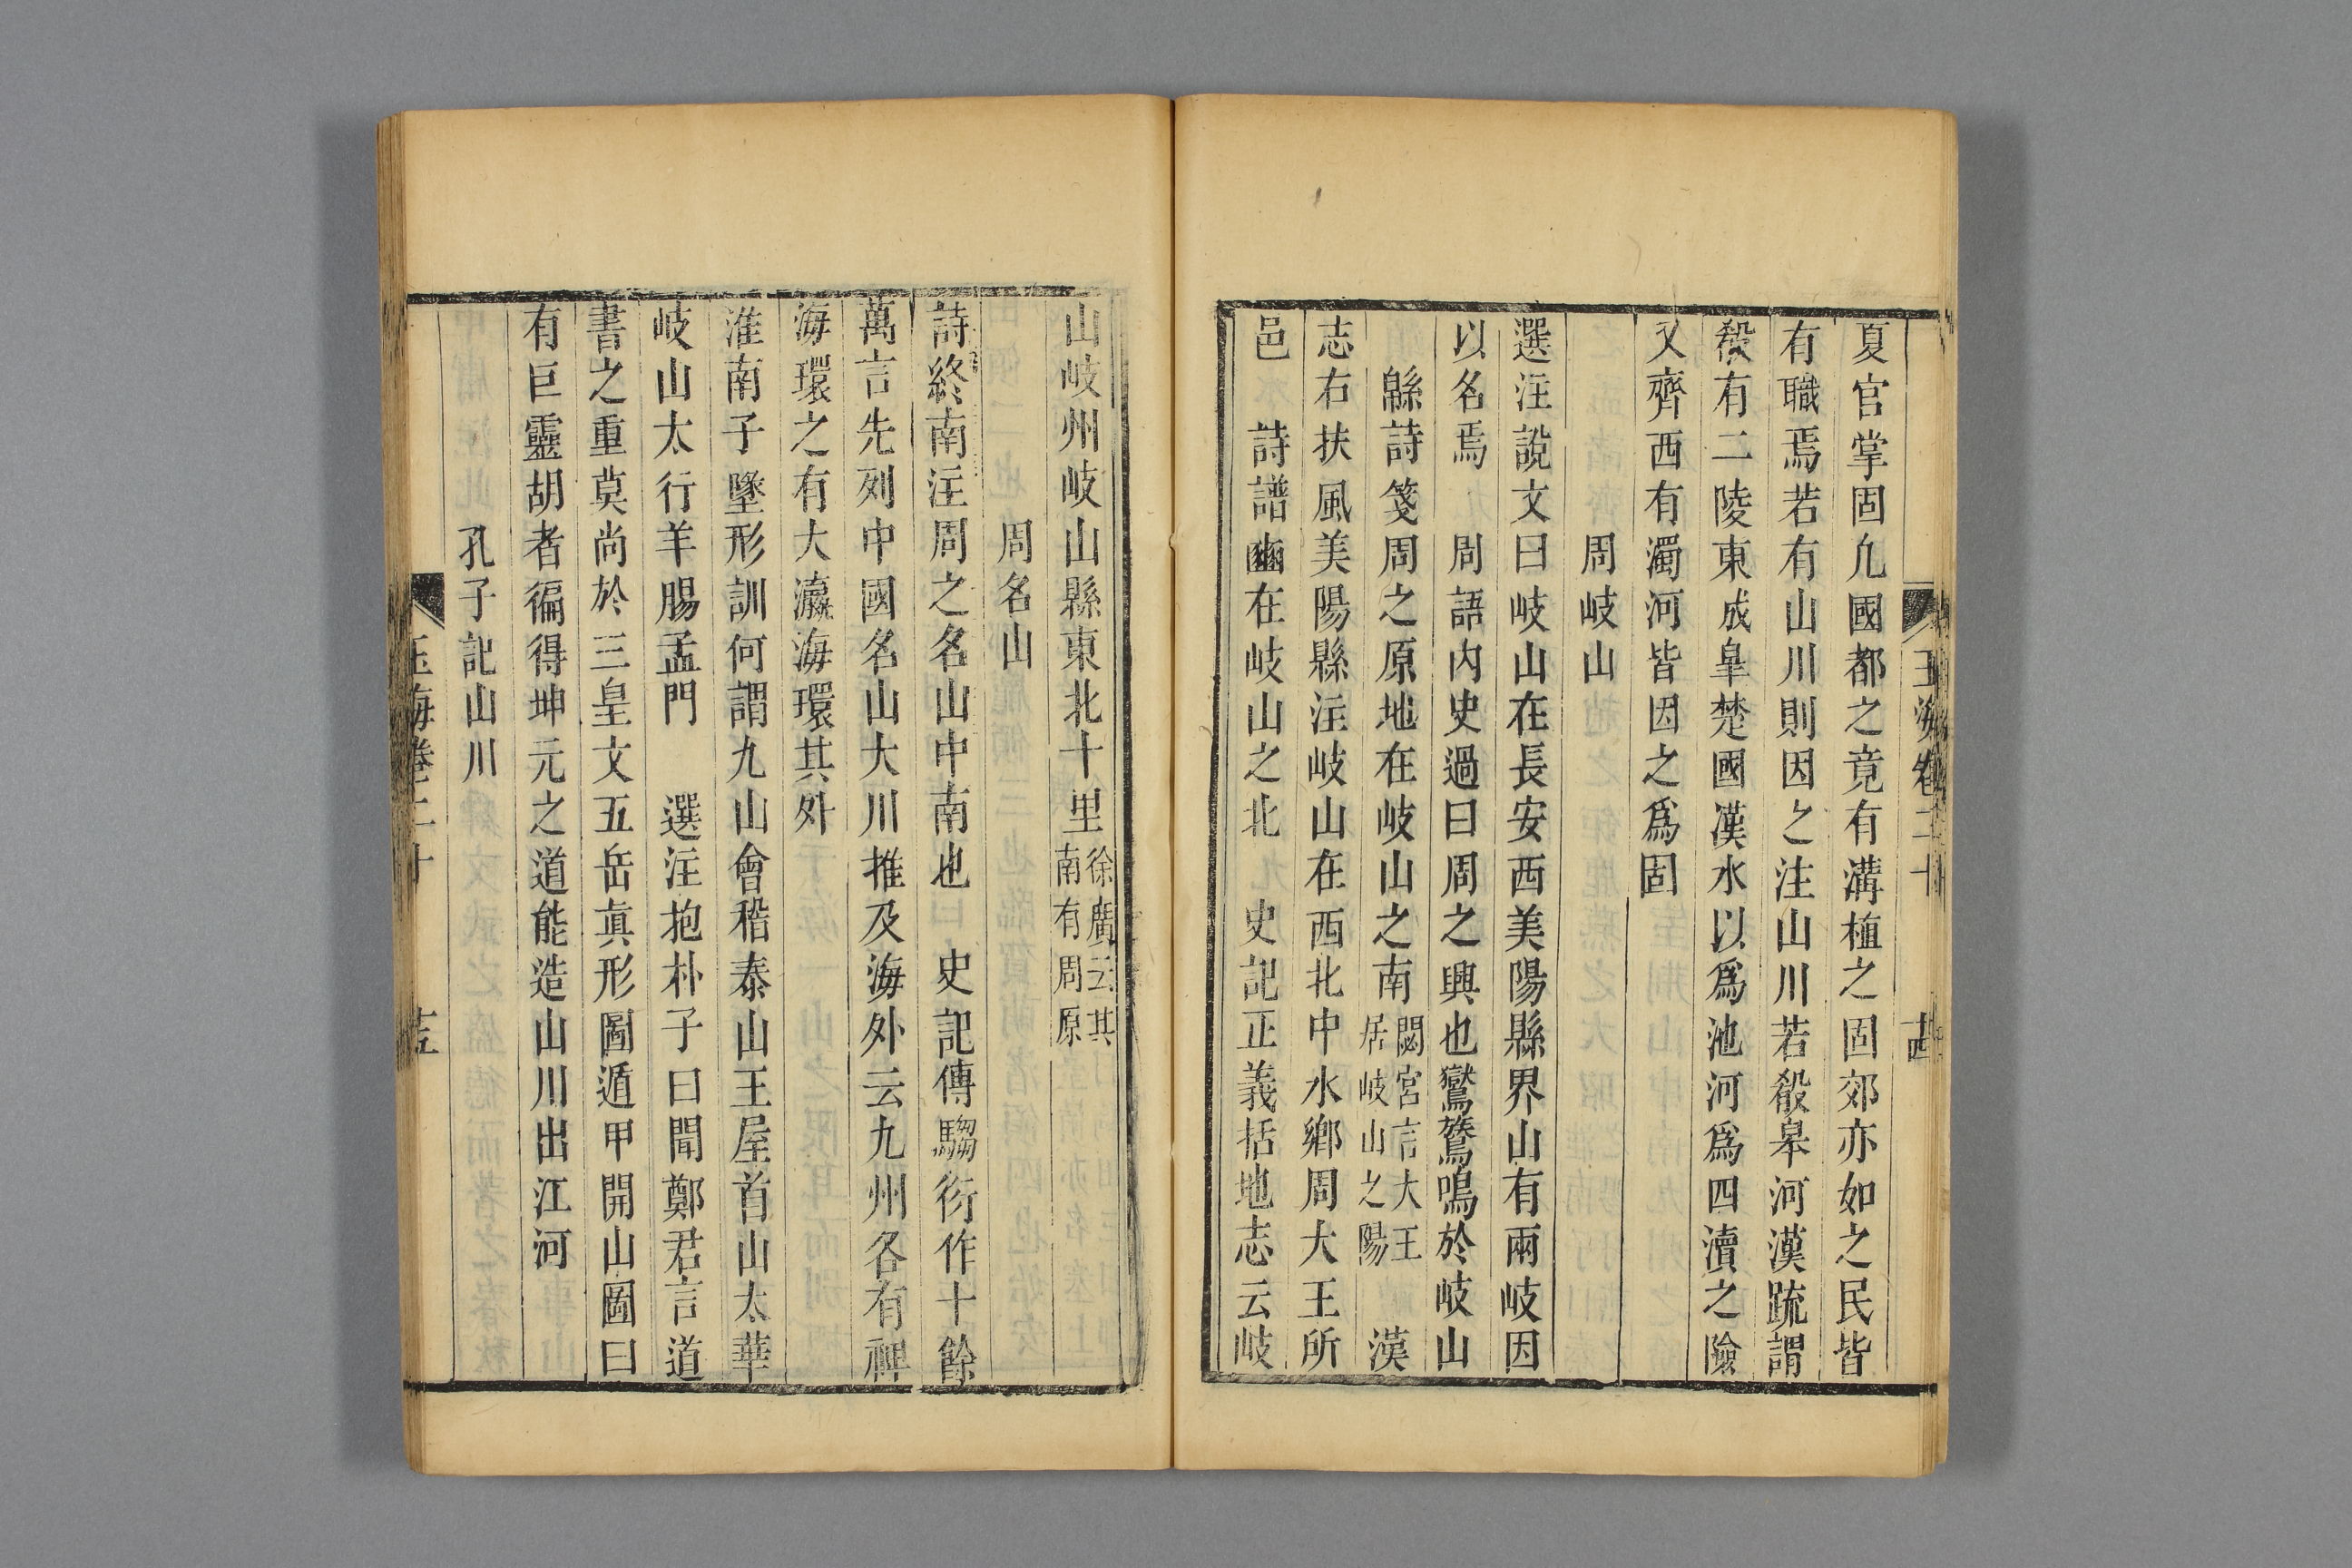 玉海卷二十 十四
夏官掌固凢國都之竟有溝植之固郊亦如之民皆
有職焉若有山川則因之注山川若殽皋河漢䟽謂
殽有二陵東成皐楚國漢水以爲池河爲四瀆之險
又齊西有濁河皆因之爲固
周岐山
選注說文曰岐山在長安西美陽縣界山有兩岐因
以名焉 周語内史過曰周之興也鸑鷟鳴於岐山
緜詩箋周之原地在岐山之南閟宮言大王居岐山之陽 漢
志右扶風美陽縣注岐山在西北中水鄉周大王所
邑 詩譜豳在岐山之北 史記正義括地志云岐
山岐州岐山縣東北十里徐廣云其南有周原
周名山
詩終南注周之名山中南也 史記傳騶衍作十餘
萬言先列中國名山大川推及海外云九州各有裨
海環之有大瀛海環其外
淮南子墬形訓何謂九山會稽泰山王屋首山太華
岐山太行羊腸孟門 選注抱朴子曰聞鄭君言道
書之重莫尚於三皇文五岳眞形圖遁甲開山圖曰
有巨靈胡者徧得坤元之道能造山川出江河
孔子記山川
玉海卷二十 十五